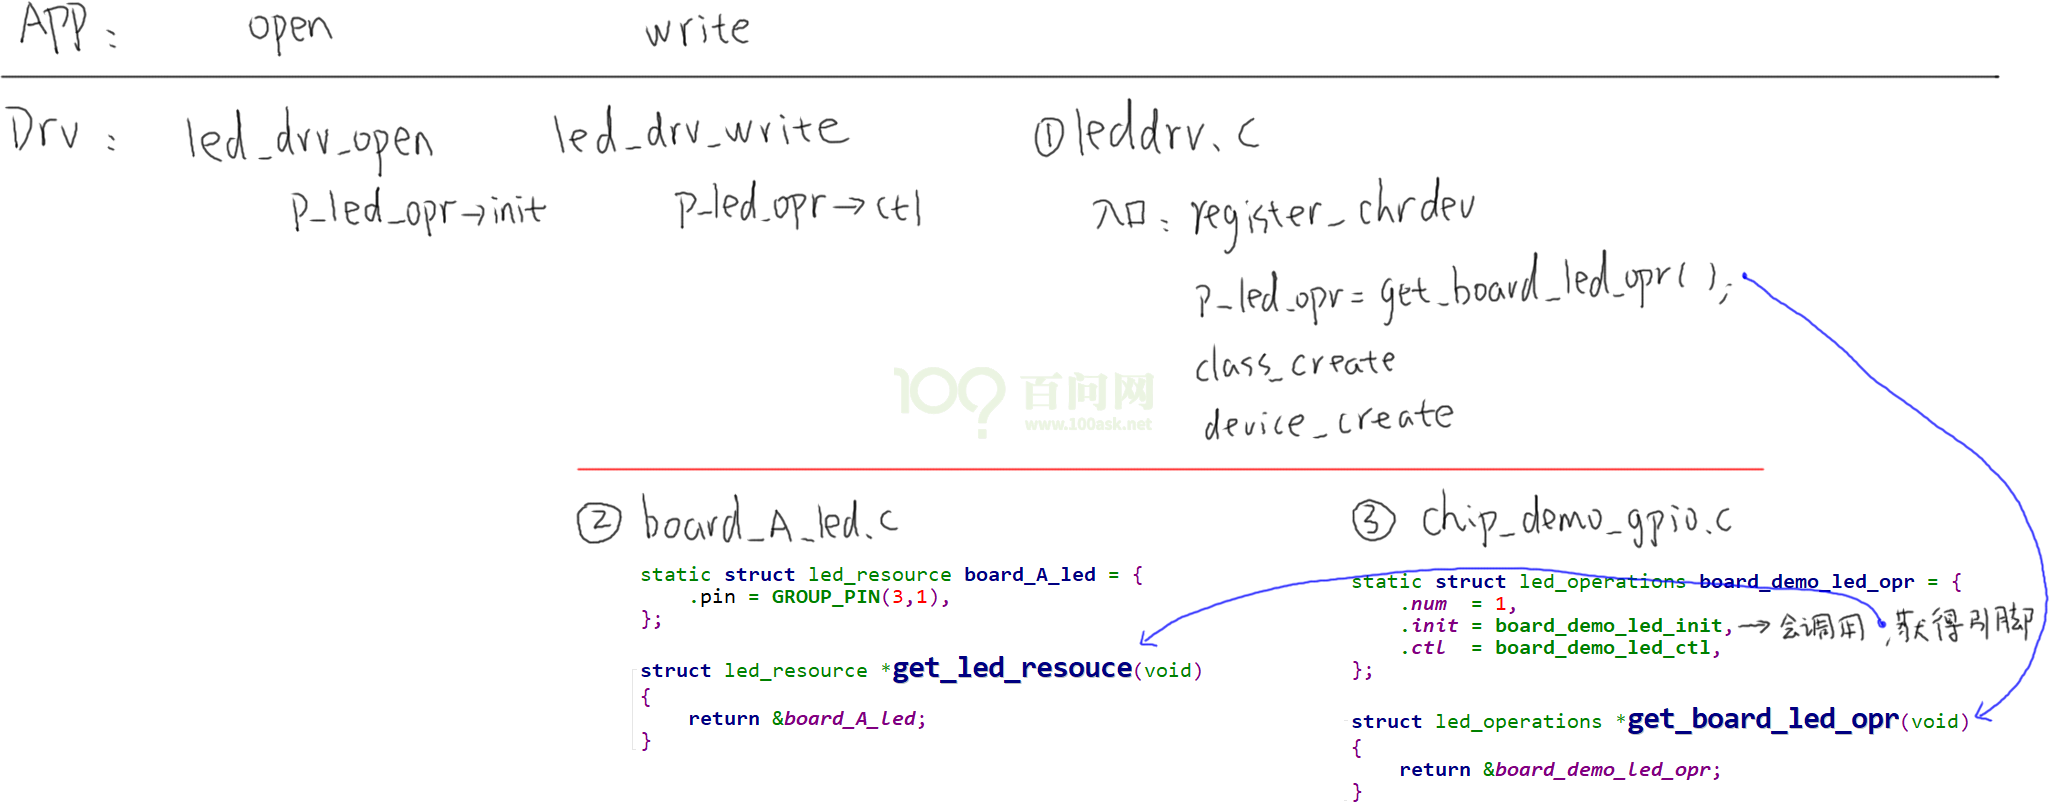 App: open write
Drv: led_drv_open led_drv_write ①leddrv.c
p_led_opr→init p_led_opr→ctl 入口: register_chrdev
p_led_opr = get_board_led_opr();
class_create
device_create
100? 百问网
www.100ask.net
② board_A_led.c
static struct led_resource board_A_led = {
.pin = GROUP_PIN(3,1),
};
struct led_resource *get_led_resouce(void)
{
return &board_A_led;
}
③ chip_demo_gpio.c
static struct led_operations board_demo_led_opr = {
.num = 1,
.init = board_demo_led_init, → 会调用, 获得引脚
.ctl = board_demo_led_ctl,
};
struct led_operations *get_board_led_opr(void)
{
return &board_demo_led_opr;
}